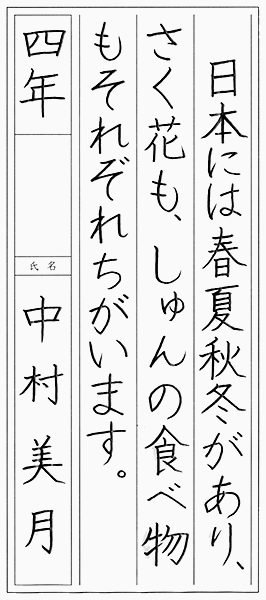 日本には春夏秋冬があり、
さく花も、しゅんの食べ物
もそれぞれちがいます。
四年
氏名
中村美月